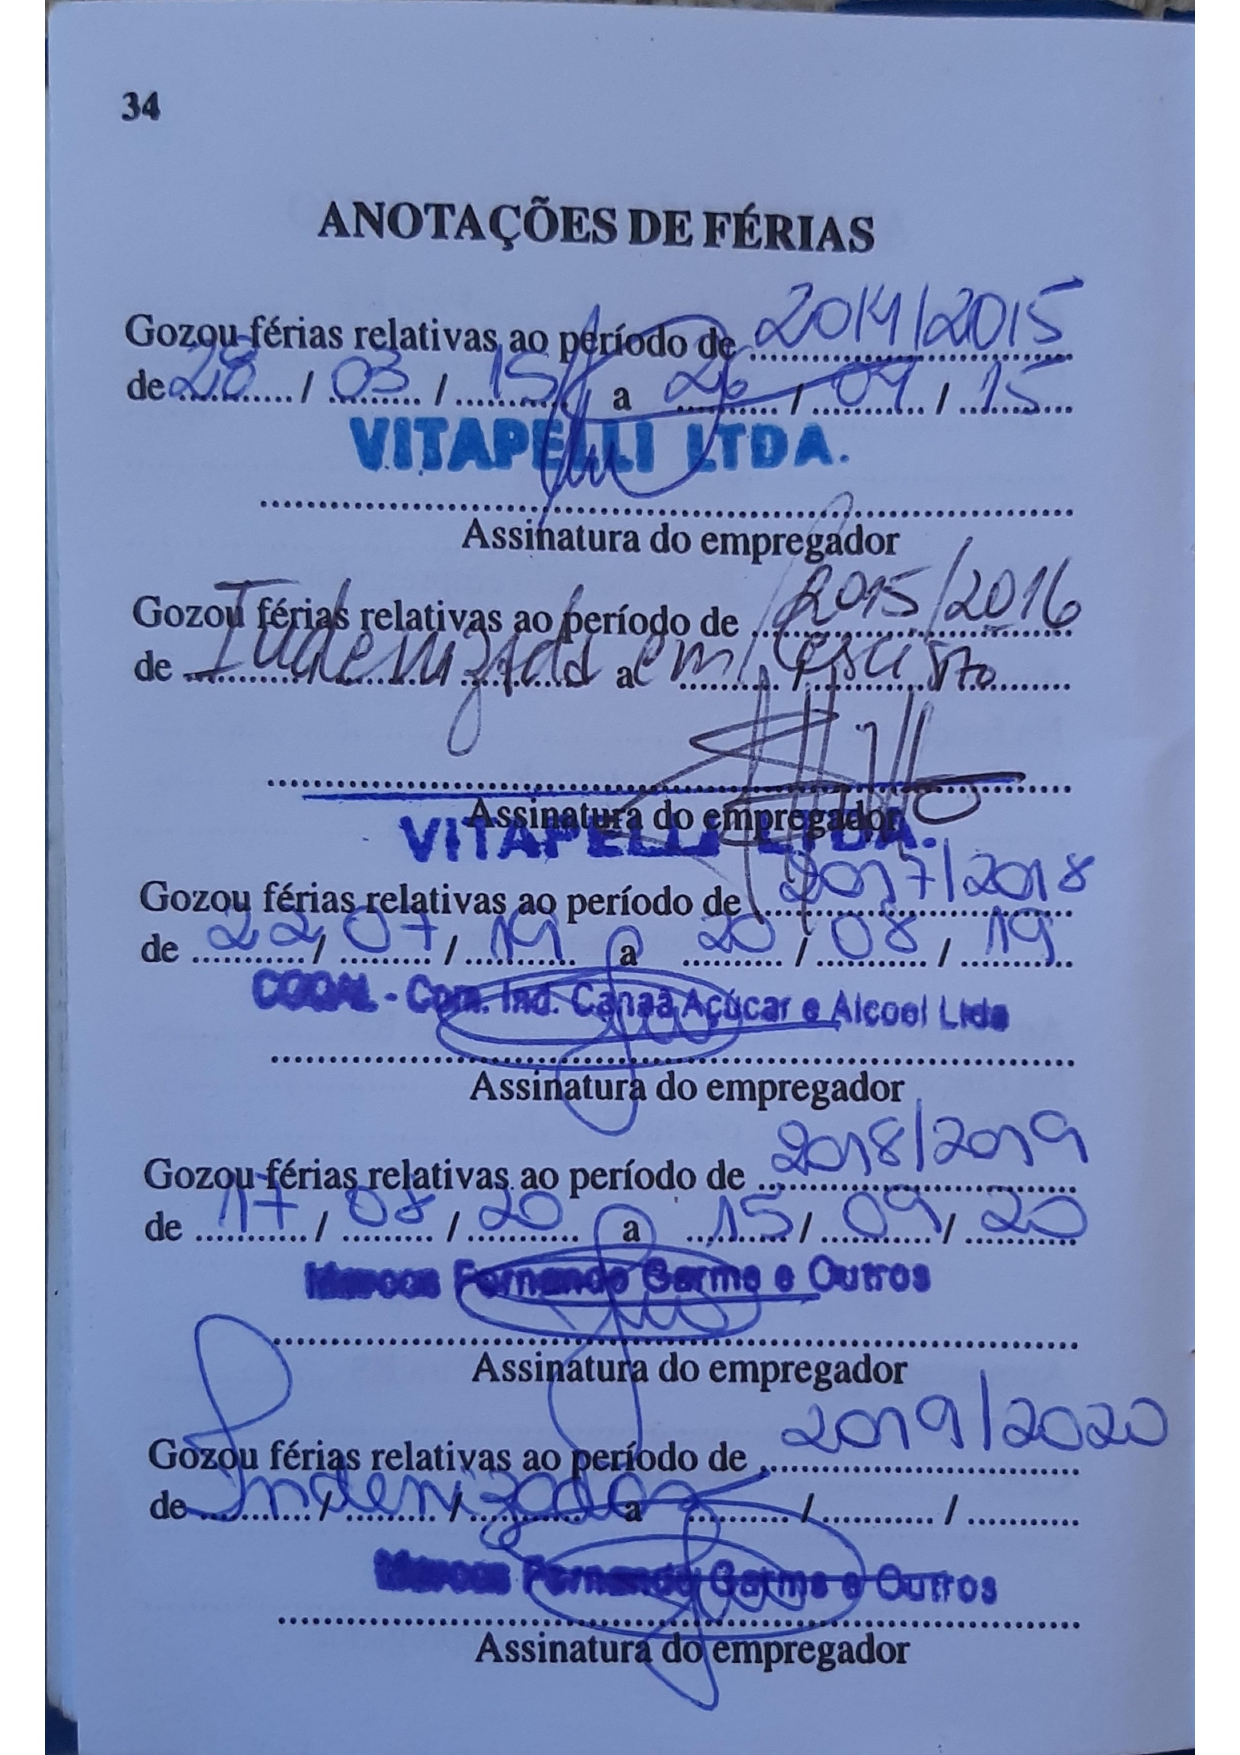 34
ANOTAÇÕES DE FÉRIAS
Gozou férias relativas ao período de 2014/2015
de 28 / 03 / 15 a 26 / 04 / 15
VITAPELLI LTDA.
Assinatura do empregador
Gozou férias relativas ao período de 2015/2016
de Indenizado a em rescisão
Assinatura do empregador
VITAPELLI LTDA.
Gozou férias relativas ao período de 2017/2018
de 22 / 07 / 19 a 20 / 08 / 19
COCAL - Com. Ind. Canaã Açúcar e Alcool Ltda
Assinatura do empregador
Gozou férias relativas ao período de 2018/2019
de 17 / 08 / 20 a 15 / 09 / 20
Marcos Fernando Garms e Outros
Assinatura do empregador
Gozou férias relativas ao período de 2019/2020
de Indenizadas / / a / /
Marcos Fernando Garms e Outros
Assinatura do empregador